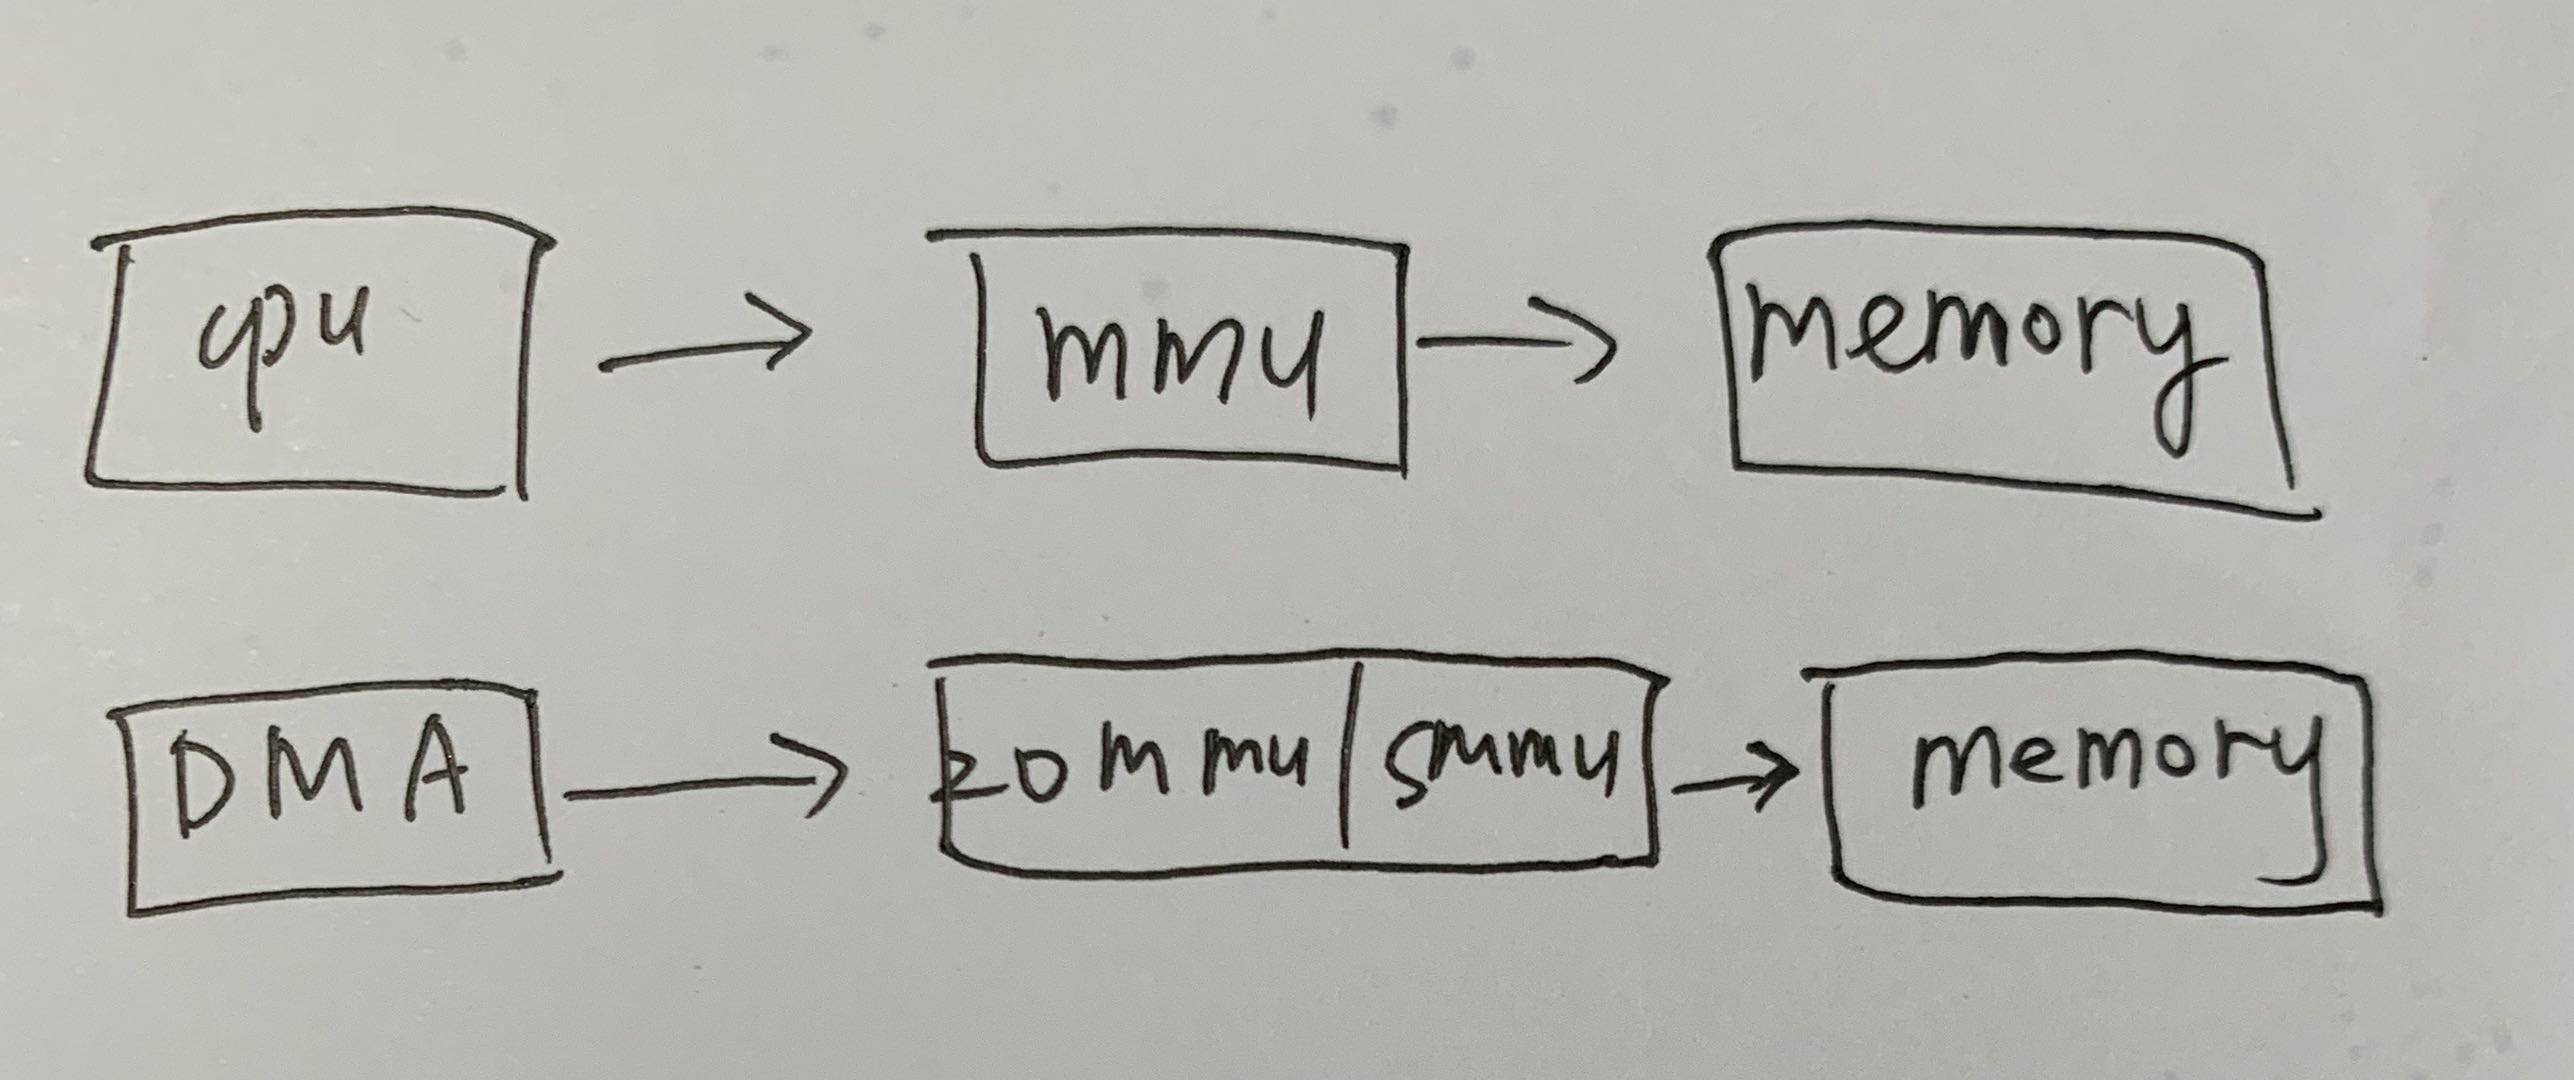 cpu mmu memory
DMA IOmmu/smmu memory